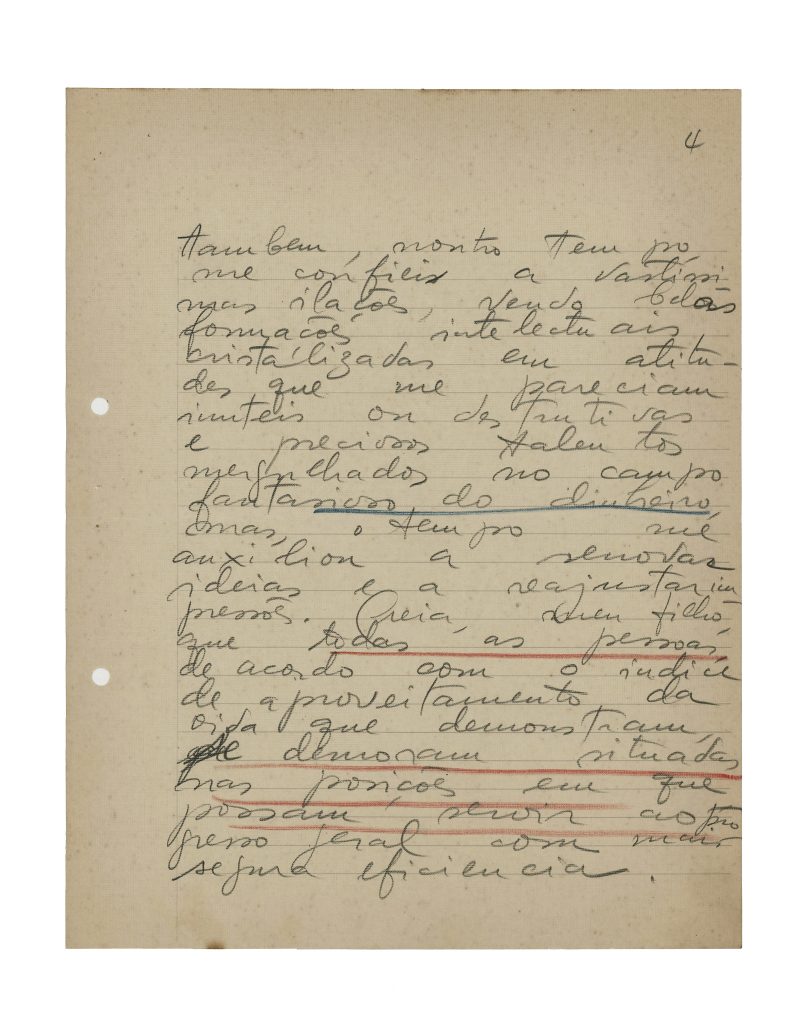 4
tambem, noutro tempo
me confiei a vastissi-
mas ilações, vendo belas
formações intelectuais,
cristalizadas em atitu-
des que me pareciam
inuteis ou destrutivas
e preciosos talentos
mergulhados no campo
fantasioso do dinheiro,
mas, o tempo me
auxiliou a renovar
ideias e a reajustar im
pressões. Creia, meu filho
que todas as pessoas,
de acordo com o indice
de aproveitamento da
vida que demonstram,
se demoram situadas
nas posições em que
possam servir ao pro
gresso geral com mais
segura eficiencia.